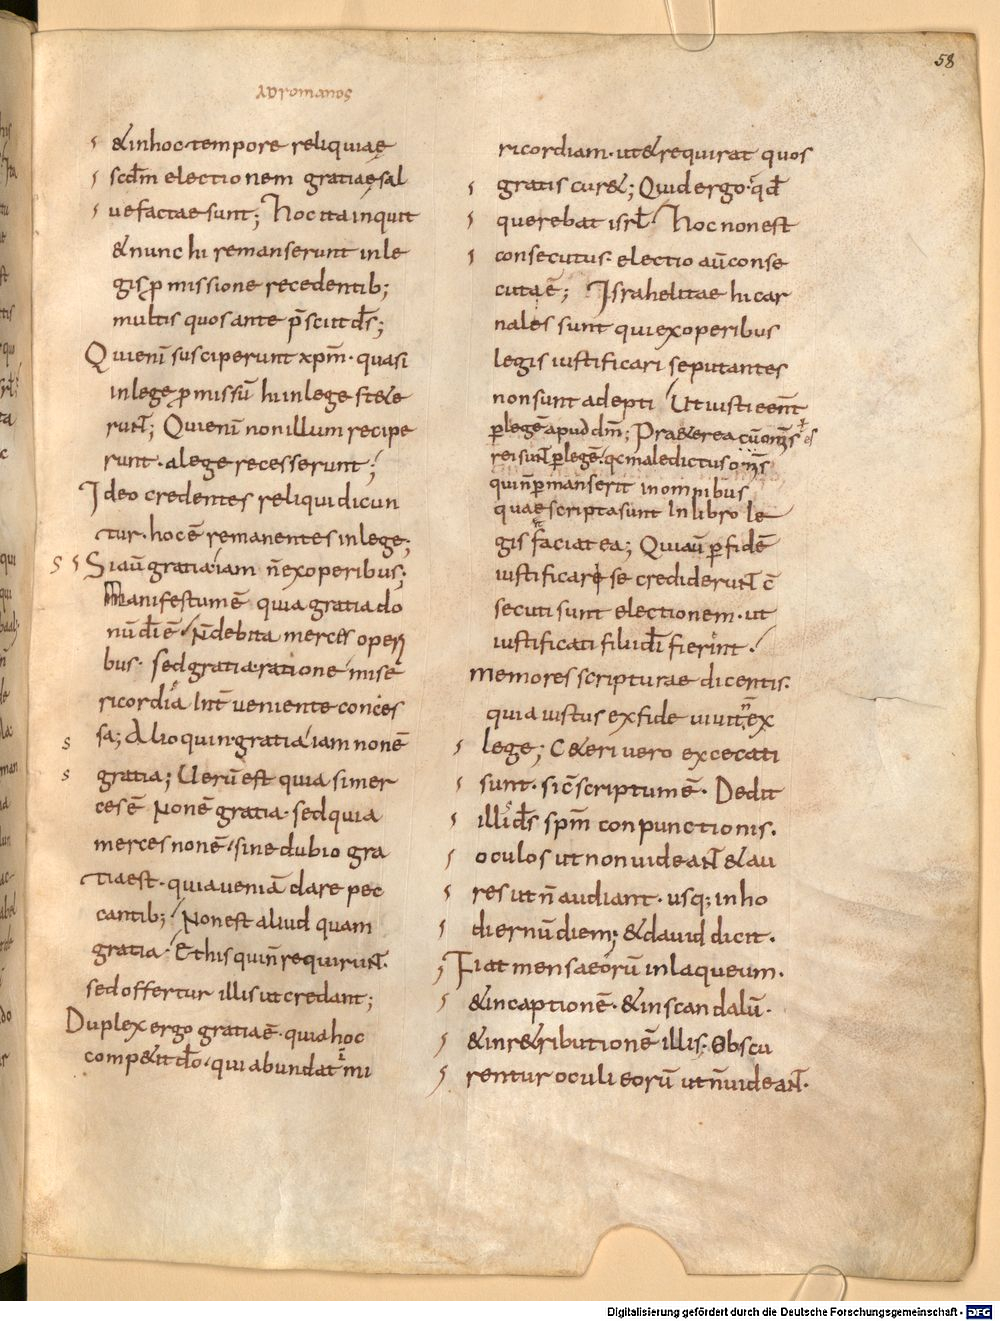 58
ADromanos
&inhoc·tempore reliquiaę
scd̄m electionem gratiaęsal
uefactaesunt; hoc ita inquit
&nunc hi remanserunt inle
gis ꝓmissione recedentib;
multis quos ante p̄sciit d̄s;
Quienī susciperunt xp̄m· quasi
inlege ꝓmissū hi inlege stete
runt; Quienī nonillum recipe
runt· alege recesserunt;
Ideo credentes reliqui dicun
tur· hocē remanentes inlege;
Siaū gratia· iam n̄ exoperibus;
Manifestumē quia gratia do
nū d̄i ē· N̄ debita merces operi
bus· sed gratia· ratione mise
ricordia Int̄ueniente conces
sa; Alioquin· gratia iam nonē
gratia; Uerūest quia simer
cesē Nonē gratia· sed quia
merces nonē· sine dubio gra
tiaest· quia ueniā dare pec
cantib; Non est aliud quam
gratia· Et his qui n̄ requirunt·
sed offertur illis ut credant;
Duplex ergo gratiaē· quia hoc
comp&it dō· qui abundat mi
ricordiam· ut&requirat quos
gratis cur&; Quid ergo· qd̄
querebat isrl̄· hoc nonest
consecutus· electio aū conse
cuta ē; Israhelitae hi car
nales sunt qui exoperibus
legis iustificari seputantes
non sunt adepti Ut iusti eēnt
p̲ legē apud dm̄; Pra&erea cū om̄s
rei sunt p̲ legē· qc maledictus om̄s
qui n̄ p̲manserit in omnibus
quae scripta sunt In libro le
gis faciat ea; Qui aū p̲ fidē
iustificari se crediderunt c̄
secuti sunt electionem· ut
iustificati filii d̄i fierint·
memores scripturae dicentis·
quia iustus ex fide uiuit n̄ ex
lege; C&eri uero excecati
sunt· sic̄ scriptumē· Dedit
illis d̄s sp̄m conpunctionis·
oculos ut non uideant &au
res ut n̄ audiant· usq; in ho
diernū diem; &dauid dicit·
Fiat mensa eorū in laqueum·
&in captionē· &in scandalū·
&in r&ributionē illis; Obscu
rentur oculi eorū ut n̄ uideant·
Digitalisierung gefördert durch die Deutsche Forschungsgemeinschaft - DFG